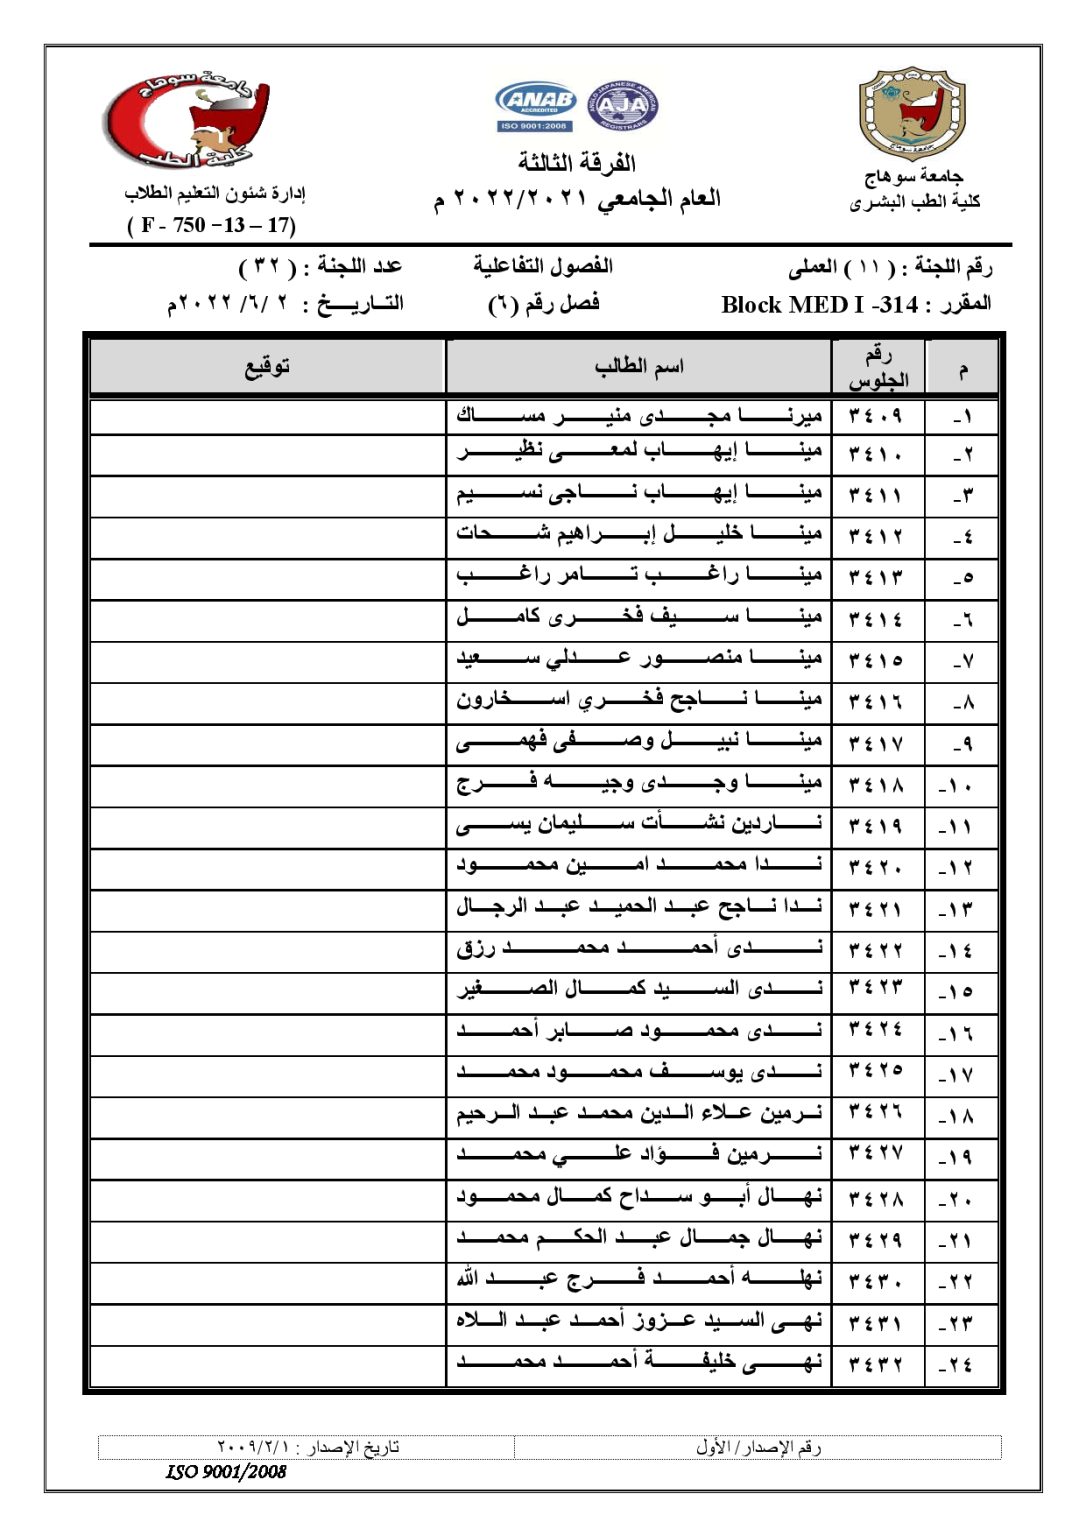 جامعة سوهاج
كلية الطب
ANAB
ACCREDITED
ISO 9001:2008
ANGLO JAPANESE AMERICAN
AJA
REGISTRARS
جامعة سوهاج
جامعة سوهاج
كلية الطب البشرى
الفرقة الثالثة
العام الجامعي ٢٠٢٢/٢٠٢١ م
إدارة شئون التعليم الطلاب
( F - 750 –13 – 17)
رقم اللجنة : ( ١١ ) العملى الفصول التفاعلية عدد اللجنة : ( ٣٢ )
المقرر : Block MED I -314 فصل رقم (٦) التـاريـــخ : ٢ /٦/ ٢٠٢٢م
م رقم الجلوس اسم الطالب توقيع
١- ٣٤٠٩ ميرنا مجدى منير مساك
٢- ٣٤١٠ مينا إيهاب لمعى نظير
٣- ٣٤١١ مينا إيهاب ناجى نسيم
٤- ٣٤١٢ مينا خليل إبراهيم شحات
٥- ٣٤١٣ مينا راغب تامر راغب
٦- ٣٤١٤ مينا سيف فخرى كامل
٧- ٣٤١٥ مينا منصور عدلي سعيد
٨- ٣٤١٦ مينا ناجح فخري اسخارون
٩- ٣٤١٧ مينا نبيل وصفى فهمى
١٠- ٣٤١٨ مينا وجدى وجيه فرج
١١- ٣٤١٩ ناردين نشأت سليمان يسى
١٢- ٣٤٢٠ ندا محمد امين محمود
١٣- ٣٤٢١ ندا ناجح عبد الحميد عبد الرجال
١٤- ٣٤٢٢ ندى أحمد محمد رزق
١٥- ٣٤٢٣ ندى السيد كمال الصغير
١٦- ٣٤٢٤ ندى محمود صابر أحمد
١٧- ٣٤٢٥ ندى يوسف محمود محمد
١٨- ٣٤٢٦ نرمين علاء الدين محمد عبد الرحيم
١٩- ٣٤٢٧ نرمين فؤاد علي محمد
٢٠- ٣٤٢٨ نهال أبو سداح كمال محمود
٢١- ٣٤٢٩ نهال جمال عبد الحكم محمد
٢٢- ٣٤٣٠ نهله أحمد فرج عبد الله
٢٣- ٣٤٣١ نهى السيد عزوز أحمد عبد اللاه
٢٤- ٣٤٣٢ نهى خليفة أحمد محمد
رقم الإصدار/ الأول تاريخ الإصدار : ٢٠٠٩/٢/١
ISO 9001/2008